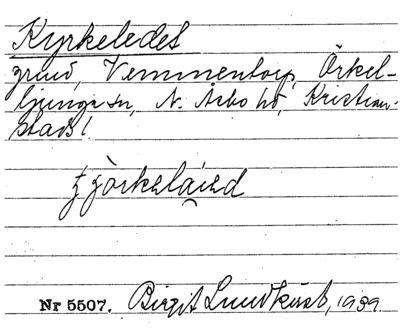 Kyrkeledet
grind, Vemmentorp, Örkel-
ljunga sn, N. Åsbo hd, Kristian-
stads l.
Nr 5507. Birgit Lundkvist, 1939.